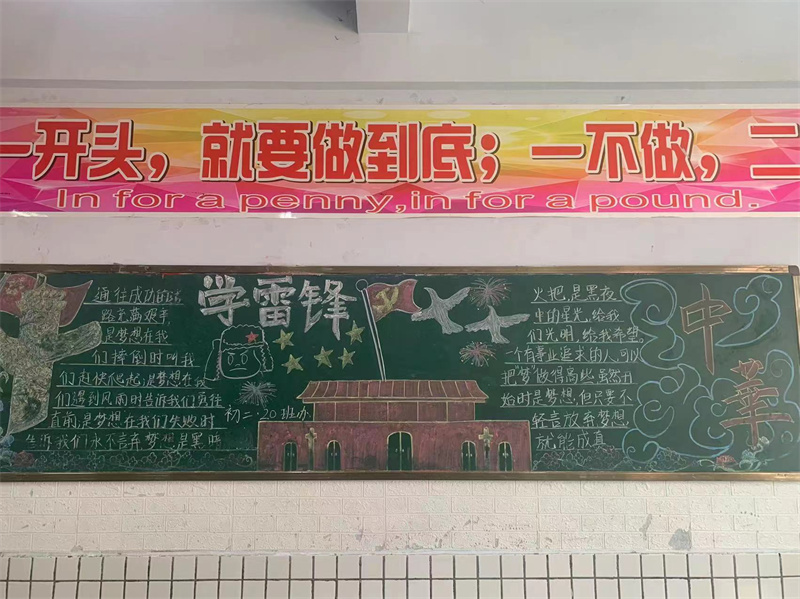 一开头，就要做到底；一不做，二
In for a penny, in for a pound.
通往成功的
路充满艰辛
是梦想在我
们摔倒时叫我
们赶快爬起,是梦想在我
们遇到风雨时告诉我们勇往
直前,是梦想在我们失败时
告诉我们永不言弃梦想是黑暗
学雷锋
初二·20班办
火把,是黑夜
中的星光,给我
们光明,给我希望。
一个有事业追求的人,可以
把梦做得高些虽然开
始时是梦想,但只要不
轻言放弃梦想
就能成真
中華